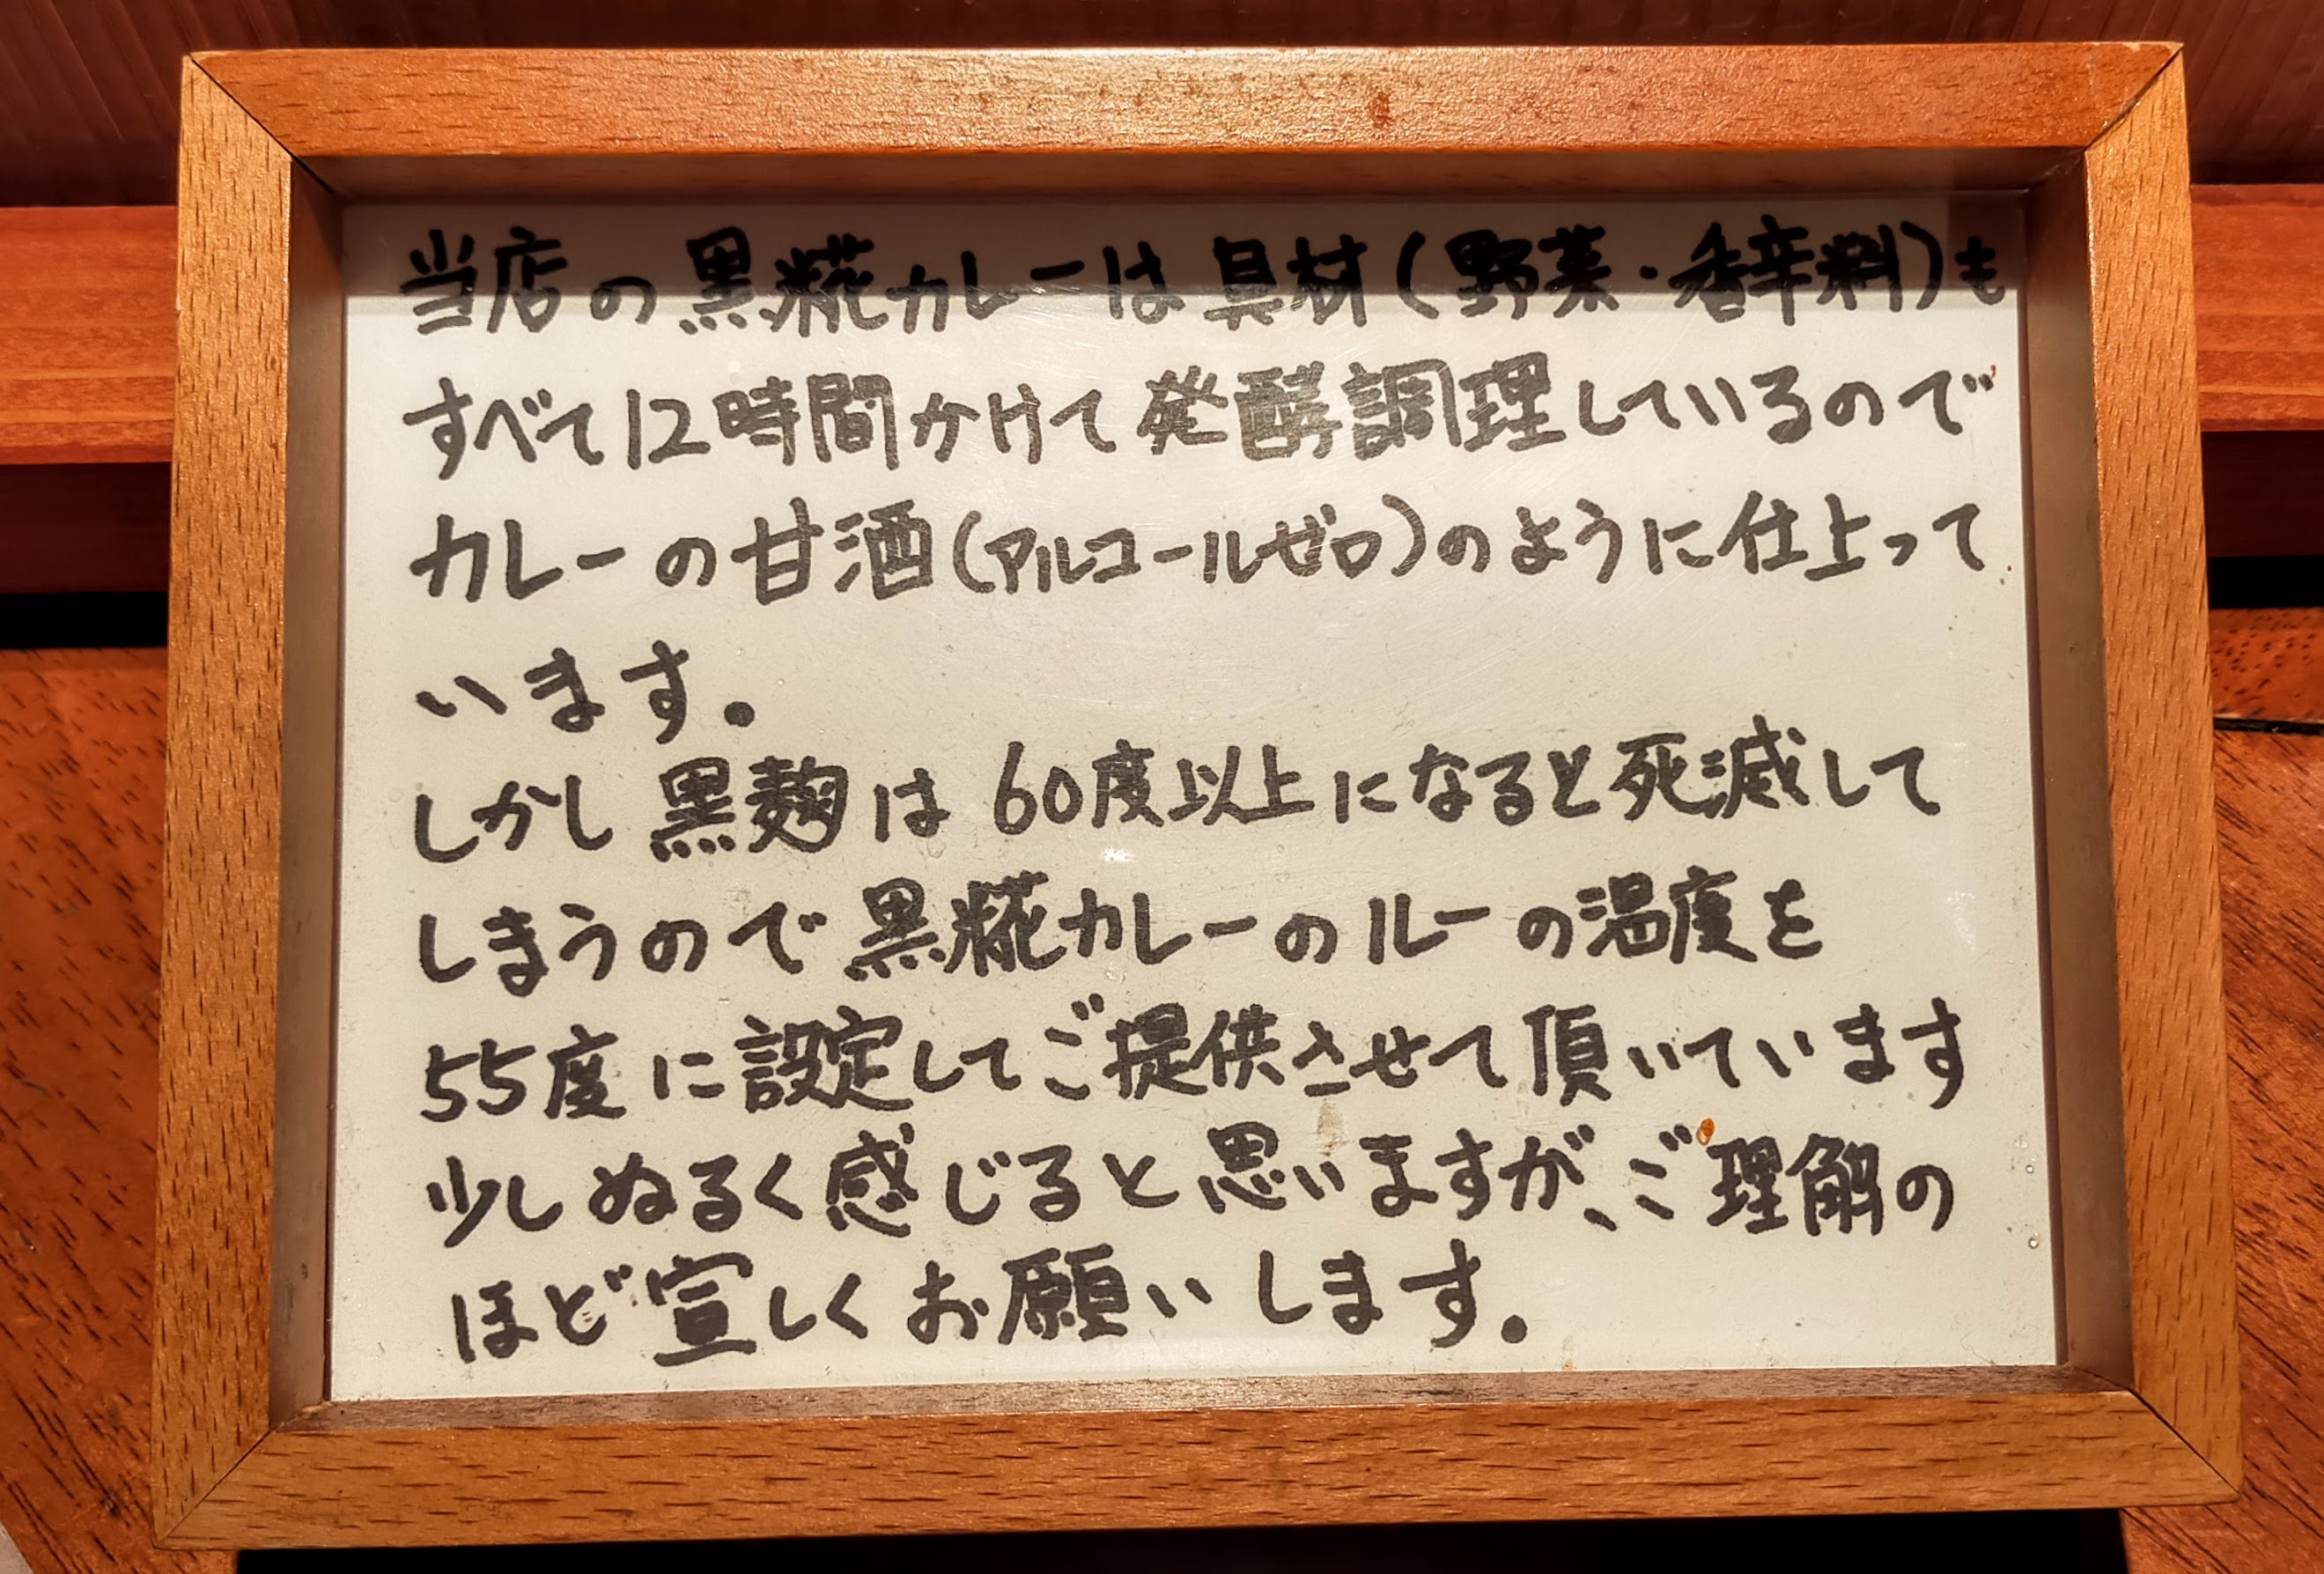 当店の黒糀カレーは具材(野菜・香辛料)も
すべて12時間かけて発酵調理しているので
カレーの甘酒(アルコールゼロ)のように仕上って
います。
しかし黒麹は60度以上になると死滅して
しまうので黒糀カレーのルーの温度を
55度に設定してご提供させて頂いています
少しぬるく感じると思いますが、ご理解の
ほど宜しくお願いします。